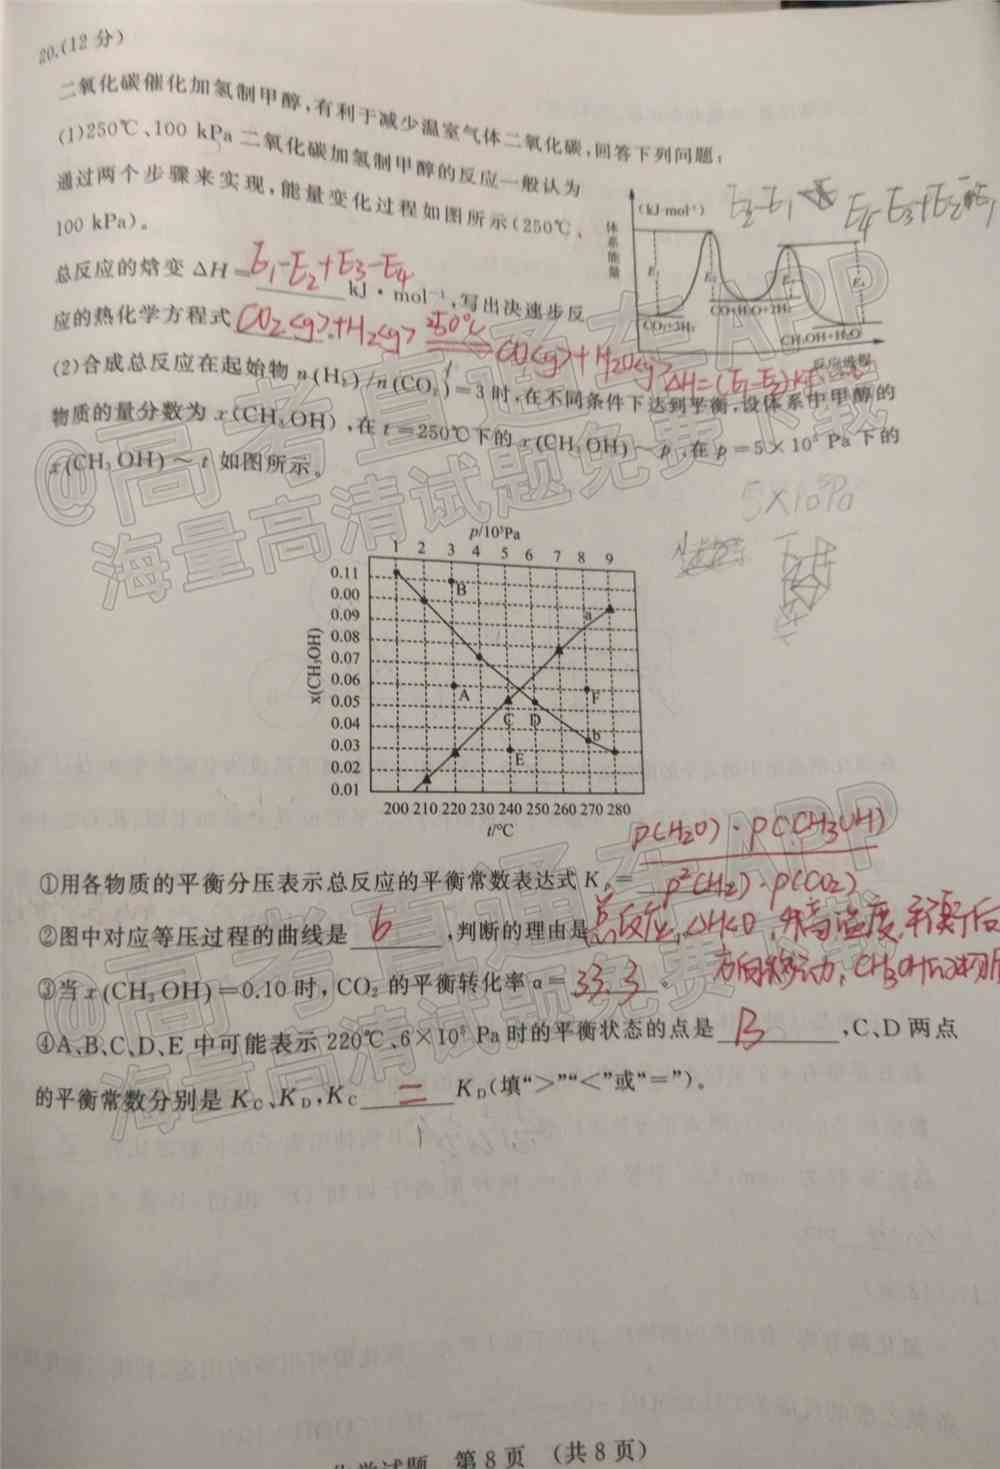 20.(12分)
二氧化碳催化加氢制甲醇,有利于减少温室气体二氧化碳,回答下列问题:
(1)250℃、100 kPa 二氧化碳加氢制甲醇的反应一般认为
通过两个步骤来实现,能量变化过程如图所示(250℃、
100 kPa)。
(kJ·mol⁻¹) E₂-E₁ E₄-E₃+E₂-E₁
体系能量
E₁ E₂ E₃ E₄
CO₂+3H₂
CO+H₂O+2H₂
CH₃OH+H₂O
反应进程
总反应的焓变 ΔH= E₁-E₂+E₃-E₄ kJ·mol⁻¹,写出决速步反
应的热化学方程式 CO₂<g>+H₂<g> 250℃ CO<g>+H₂O<g> ΔH=(E₁-E₂)
(2)合成总反应在起始物 n(H₂)/n(CO₂)=3时,在不同条件下达到平衡,设体系中甲醇的
物质的量分数为 x(CH₃OH),在 t=250℃下的 x(CH₃OH)~p,在 p=5×10⁵ Pa下的
x(CH₃OH)~t 如图所示。
5×10⁵Pa
p/10⁵Pa
1 2 3 4 5 6 7 8 9
0.11
0.00
0.09
0.08
0.07
0.06
0.05
0.04
0.03
0.02
0.01
x(CH₃OH)
B a A F C D b E
200 210 220 230 240 250 260 270 280
t/℃
p(H₂O)·p(CH₃OH)
①用各物质的平衡分压表示总反应的平衡常数表达式 Kₚ= p²(H₂)·p(CO₂)
②图中对应等压过程的曲线是 b ,判断的理由是总反应,ΔH<0,升高温度,平衡向
方向移动,CH₃OH
③当 x(CH₃OH)=0.10时,CO₂的平衡转化率 α= 33.3 。
④A、B、C、D、E 中可能表示 220℃、6×10⁵ Pa时的平衡状态的点是 B ,C、D两点
的平衡常数分别是 K_C、K_D,K_C = K_D(填“>”“<”或“=”)。
化学试题 第8页 (共8页)
@高考直通车APP
海量高清试题免费下载
@高考直通车APP
海量高清试题免费下载